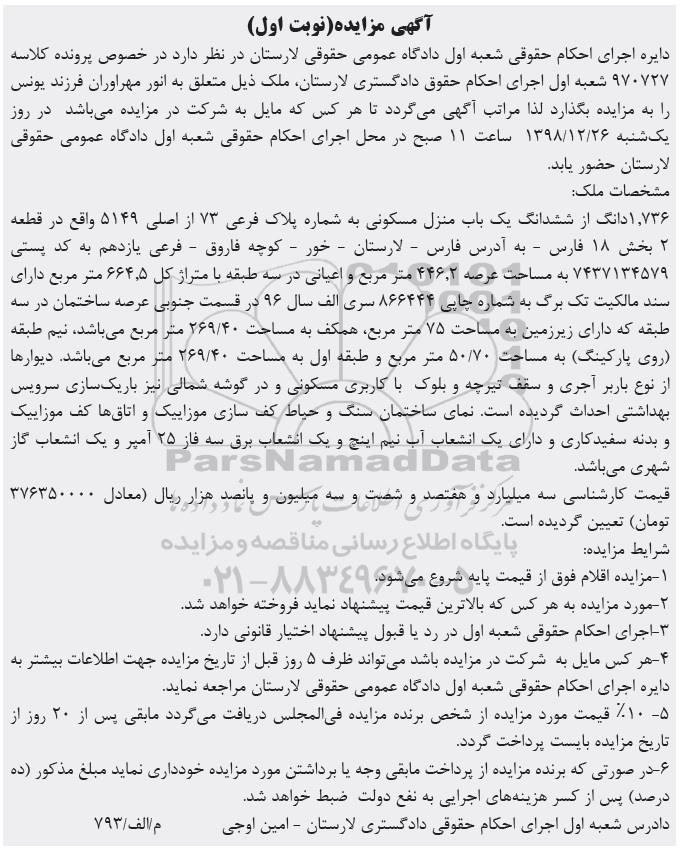 آگهی مزایده(نوبت اول)
دایره اجرای احکام حقوقی شعبه اول دادگاه عمومی حقوقی لارستان در نظر دارد در خصوص پرونده کلاسه
۹۷۰۷۲۷ شعبه اول اجرای احکام حقوق دادگستری لارستان، ملک ذیل متعلق به انور مهراوران فرزند یونس
را به مزایده بگذارد لذا مراتب آگهی می‌گردد تا هر کس که مایل به شرکت در مزایده می‌باشد در روز
یک‌شنبه ۱۳۹۸/۱۲/۲۶ ساعت ۱۱ صبح در محل اجرای احکام حقوقی شعبه اول دادگاه عمومی حقوقی
لارستان حضور یابد.
مشخصات ملک:
۱,۷۳۶دانگ از ششدانگ یک باب منزل مسکونی به شماره پلاک فرعی ۷۳ از اصلی ۵۱۴۹ واقع در قطعه
۲ بخش ۱۸ فارس - به آدرس فارس - لارستان - خور - کوچه فاروق - فرعی یازدهم به کد پستی
۷۴۳۷۱۳۴۵۷۹ به مساحت عرصه ۴۴۶,۲ متر مربع و اعیانی در سه طبقه با متراژ کل ۶۶۴,۵ متر مربع دارای
سند مالکیت تک برگ به شماره چاپی ۸۶۶۴۴۴ سری الف سال ۹۶ در قسمت جنوبی عرصه ساختمان در سه
طبقه که دارای زیرزمین به مساحت ۷۵ متر مربع، همکف به مساحت ۲۶۹/۴۰ متر مربع می‌باشد، نیم طبقه
(روی پارکینگ) به مساحت ۵۰/۷۰ متر مربع و طبقه اول به مساحت ۲۶۹/۴۰ متر مربع می‌باشد. دیوارها
از نوع باربر آجری و سقف تیرچه و بلوک با کاربری مسکونی و در گوشه شمالی نیز باریک‌سازی سرویس
بهداشتی احداث گردیده است. نمای ساختمان سنگ و حیاط کف سازی موزاییک و اتاق‌ها کف موزاییک
و بدنه سفیدکاری و دارای یک انشعاب آب نیم اینچ و یک انشعاب برق سه فاز ۲۵ آمپر و یک انشعاب گاز
شهری می‌باشد.
ParsNamadData
قیمت کارشناسی سه میلیارد و هفتصد و شصت و سه میلیون و پانصد هزار ریال (معادل ۳۷۶۳۵۰۰۰۰
تومان) تعیین گردیده است.
پایگاه اطلاع رسانی مناقصه و مزایده
شرایط مزایده:
۱-مزایده اقلام فوق از قیمت پایه شروع می‌شود.
۰۲۱-۸۸۳۴۹۶۷۰-۵
۲-مورد مزایده به هر کس که بالاترین قیمت پیشنهاد نماید فروخته خواهد شد.
۳-اجرای احکام حقوقی شعبه اول در رد یا قبول پیشنهاد اختیار قانونی دارد.
۴-هر کس مایل به شرکت در مزایده باشد می‌تواند ظرف ۵ روز قبل از تاریخ مزایده جهت اطلاعات بیشتر به
دایره اجرای احکام حقوقی شعبه اول دادگاه عمومی حقوقی لارستان مراجعه نماید.
۵- ۱۰٪ قیمت مورد مزایده از شخص برنده مزایده فی‌المجلس دریافت می‌گردد مابقی پس از ۲۰ روز از
تاریخ مزایده بایست پرداخت گردد.
۶-در صورتی که برنده مزایده از پرداخت مابقی وجه یا برداشتن مورد مزایده خودداری نماید مبلغ مذکور (ده
درصد) پس از کسر هزینه‌های اجرایی به نفع دولت ضبط خواهد شد.
دادرس شعبه اول اجرای احکام حقوقی دادگستری لارستان - امین اوجی م/الف/۷۹۳